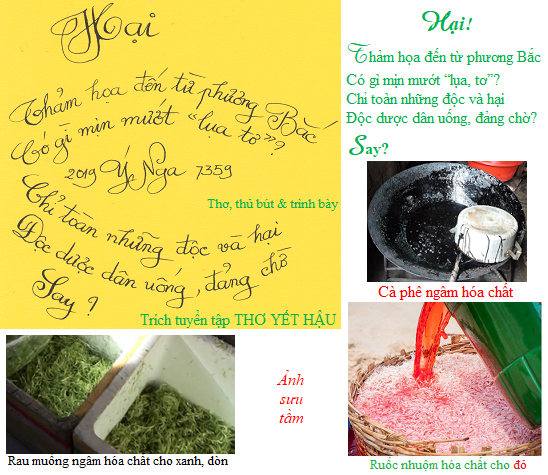 Hại
Thảm họa đến từ phương Bắc
Có gì mịn mướt “lụa tơ”?
2019 Ý Nga 7359
Thơ, thủ bút & trình bày
Chỉ toàn những độc và hại
Độc dược dân uống, đảng chờ
Say?
Trích tuyển tập THƠ YẾT HẬU
Hại!
Thảm họa đến từ phương Bắc
Có gì mịn mướt “lụa, tơ”?
Chỉ toàn những độc và hại
Độc dược dân uống, đảng chờ?
Say?
Cà phê ngâm hóa chất
Rau muống ngâm hóa chất cho xanh, dòn
Ảnh
sưu
tầm
Ruốc nhuộm hóa chất cho đỏ